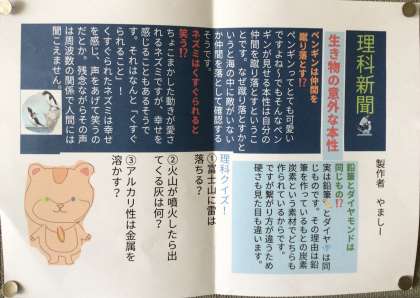 理科新聞
生き物の意外な本性
ペンギンは仲間を
蹴り落とす⁉
ペンギンってとても可愛い
ですよね〜でもそんなペン
ギンが見せる本性は自分の
仲間を蹴り落とすというこ
とです。なぜ蹴り落とすかと
いうと海の中に敵がいない
か仲間を落として確認する
そうです。
ネズミはくすぐられると
笑う⁉
ちょこまかした動きが愛さ
れるネズミですが、幸せを
感じることもあるそうで
す。それはなんと「くすぐ
られること」！
くすぐられたネズミは幸せ
を感じ、声をあげて笑うの
だとか。残念ながらその声
は周波数の関係で人間には
聞こえません。
製作者　やましー
鉛筆とダイヤモンドは
同じもの⁉
実は鉛筆とダイヤは同
じものです。その理由は鉛
筆を作っているもとの炭素
炭素という素材でどちらも
作られているからです。
ですが繋がり方が違うため
硬さも見た目も違います。
理科クイズ！
①富士山に雷は
落ちる？
②火山が噴火したら出
てくる灰は何？
③アルカリ性は金属を
溶かす？